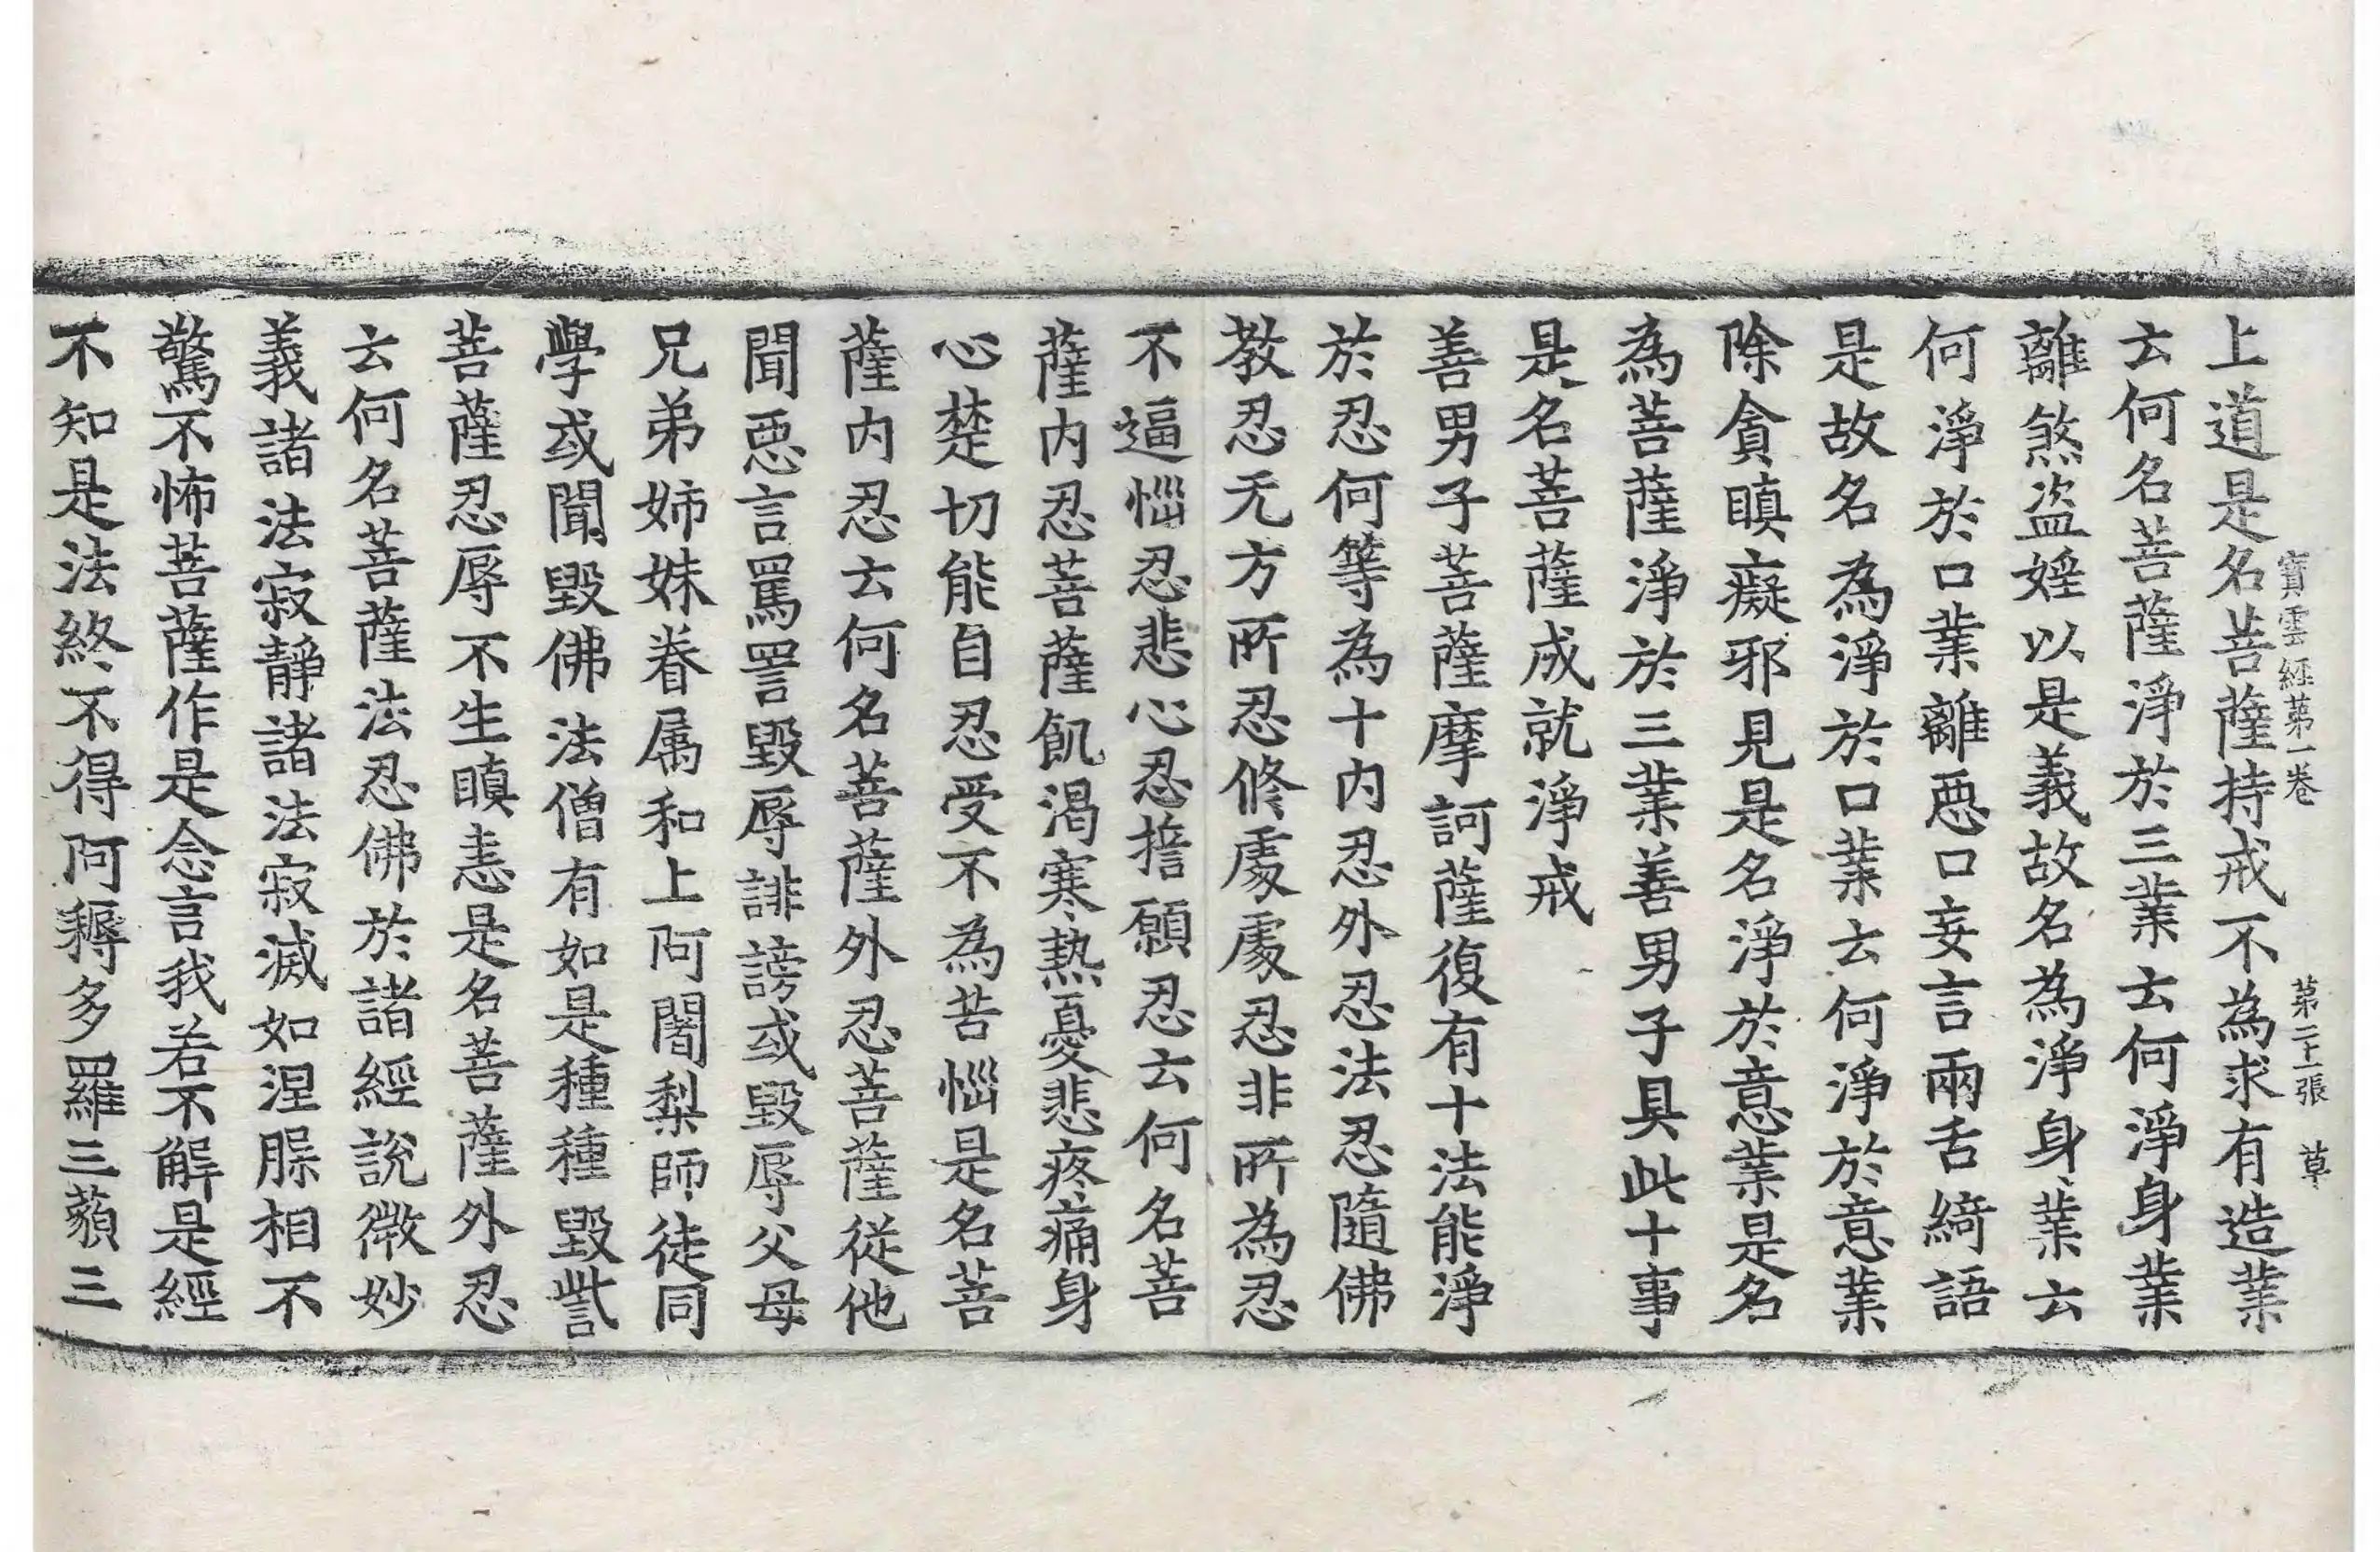 寶雲經第一卷 第二十一張 草
上道是名菩薩持戒不為求有造業
云何名菩薩淨於三業云何淨身業
離煞盜婬以是義故名為淨身業云
何淨於口業離惡口妄言兩舌綺語
是故名為淨於口業云何淨於意業
除貪瞋癡邪見是名淨於意業是名
為菩薩淨於三業善男子具此十事
是名菩薩成就淨戒
善男子菩薩摩訶薩復有十法能淨
於忍何等為十內忍外忍法忍隨佛
教忍无方所忍修處處忍非所為忍
不逼惱忍悲心忍擔願忍云何名菩
薩內忍菩薩飢渴寒熱憂悲疼痛身
心楚切能自忍受不為苦惱是名菩
薩內忍云何名菩薩外忍菩薩從他
聞惡言罵詈毀辱誹謗或毀辱父母
兄弟姉妹眷属和上阿闍梨師徒同
學或聞毀佛法僧有如是種種毀呰
菩薩忍辱不生瞋恚是名菩薩外忍
云何名菩薩法忍佛於諸經說微妙
義諸法寂靜諸法寂滅如涅槃相不
驚不怖菩薩作是念言我若不解是經
不知是法終不得阿耨多羅三藐三